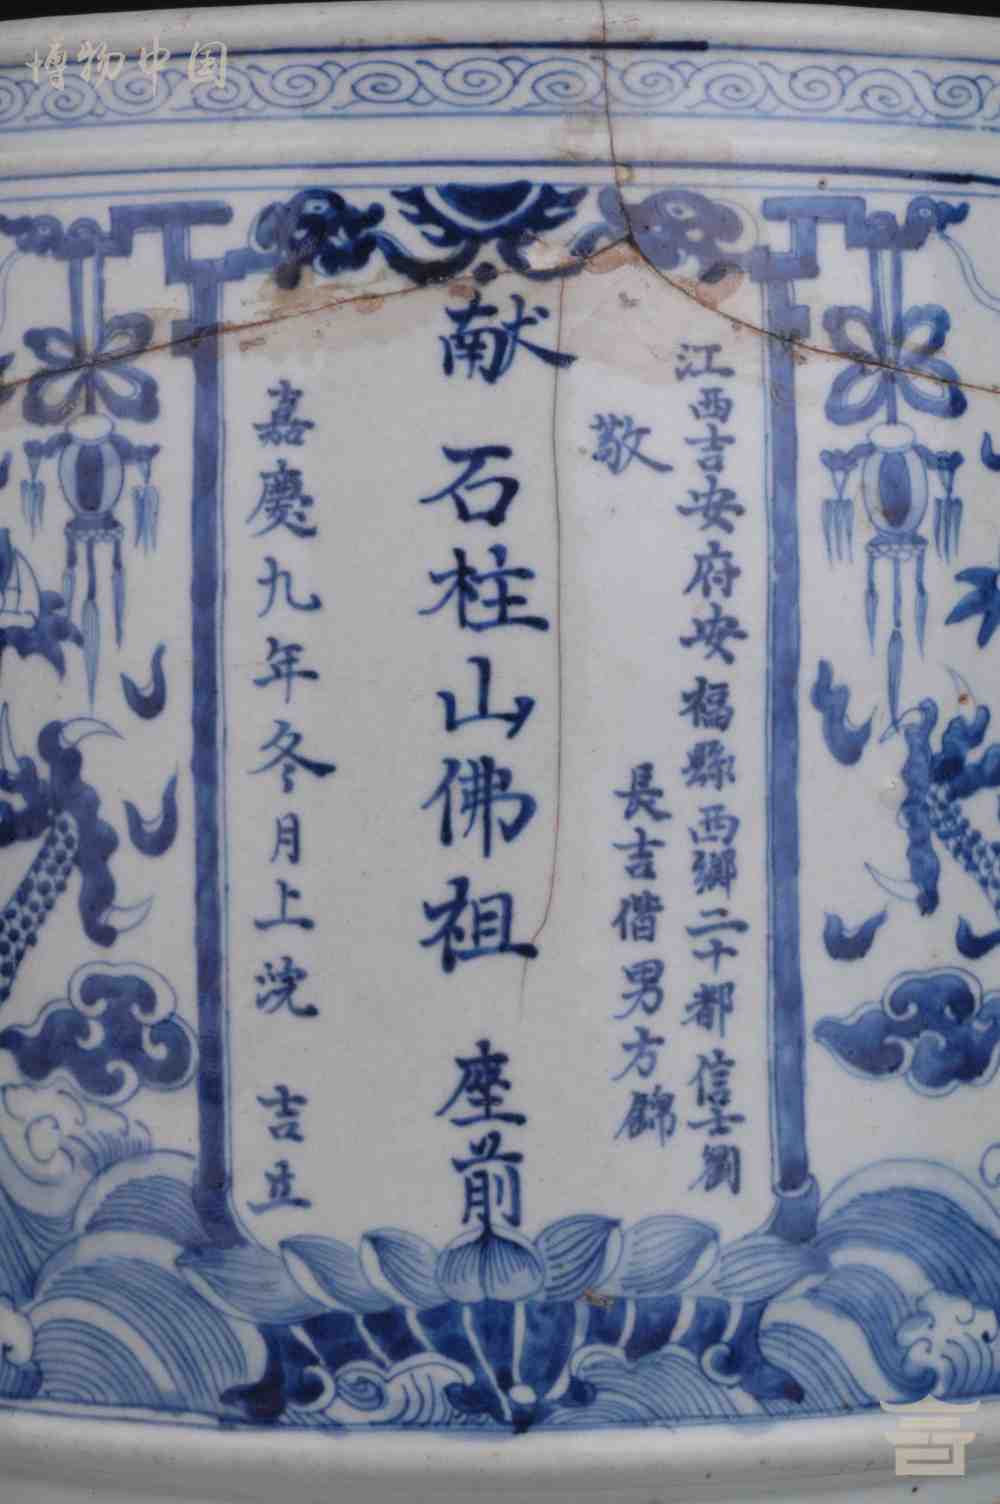 博物中国
江西吉安府安福縣西鄉二十都信士劉
長吉偕男方錦
敬
献石柱山佛祖座前
嘉慶九年冬月上浣 吉立